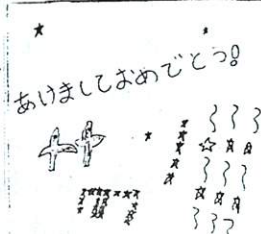 あけましておめでとう!